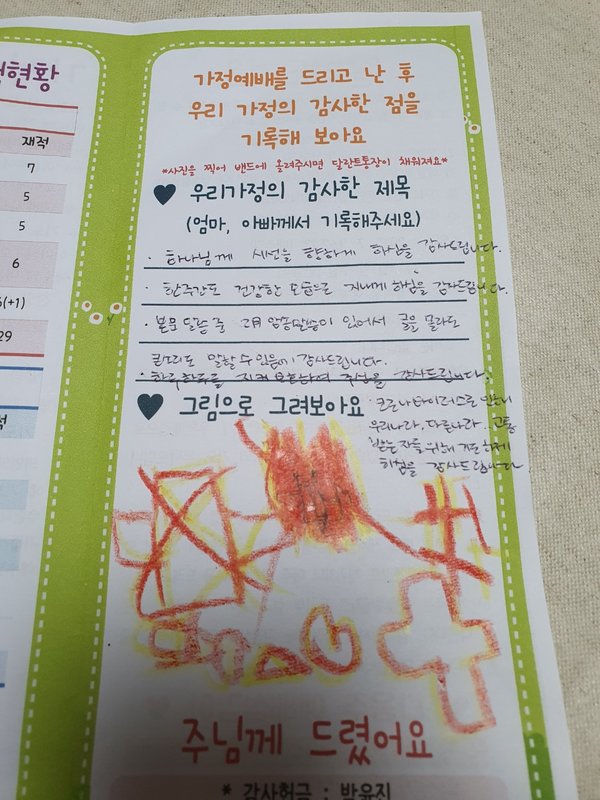 현황
재적
7
5
5
6
(+1)
29
가정예배를 드리고 난 후
우리 가정의 감사한 점을
기록해 보아요
*사진을 찍어 밴드에 올려주시면 달란트통장이 채워져요*
♥ 우리가정의 감사한 제목
(엄마, 아빠께서 기록해주세요)
· 하나님께 시선을 향하게 하심을 감사드립니다.
· 한주간도 건강한 모습으로 지내게 하심을 감사드립니다.
· 본문 말씀 중 암송말씀이 있어서 글을 몰라도
큰소리로 말할 수 있음에 감사드립니다.
주심을 감사드립니다.
♥ 그림으로 그려보아요
· 코로나바이러스로
우리나라, 다른나라.. 고통
받는 자를 위해 기도하게
하심을 감사드립니다
주님께 드렸어요
* 감사헌금 : 박유진